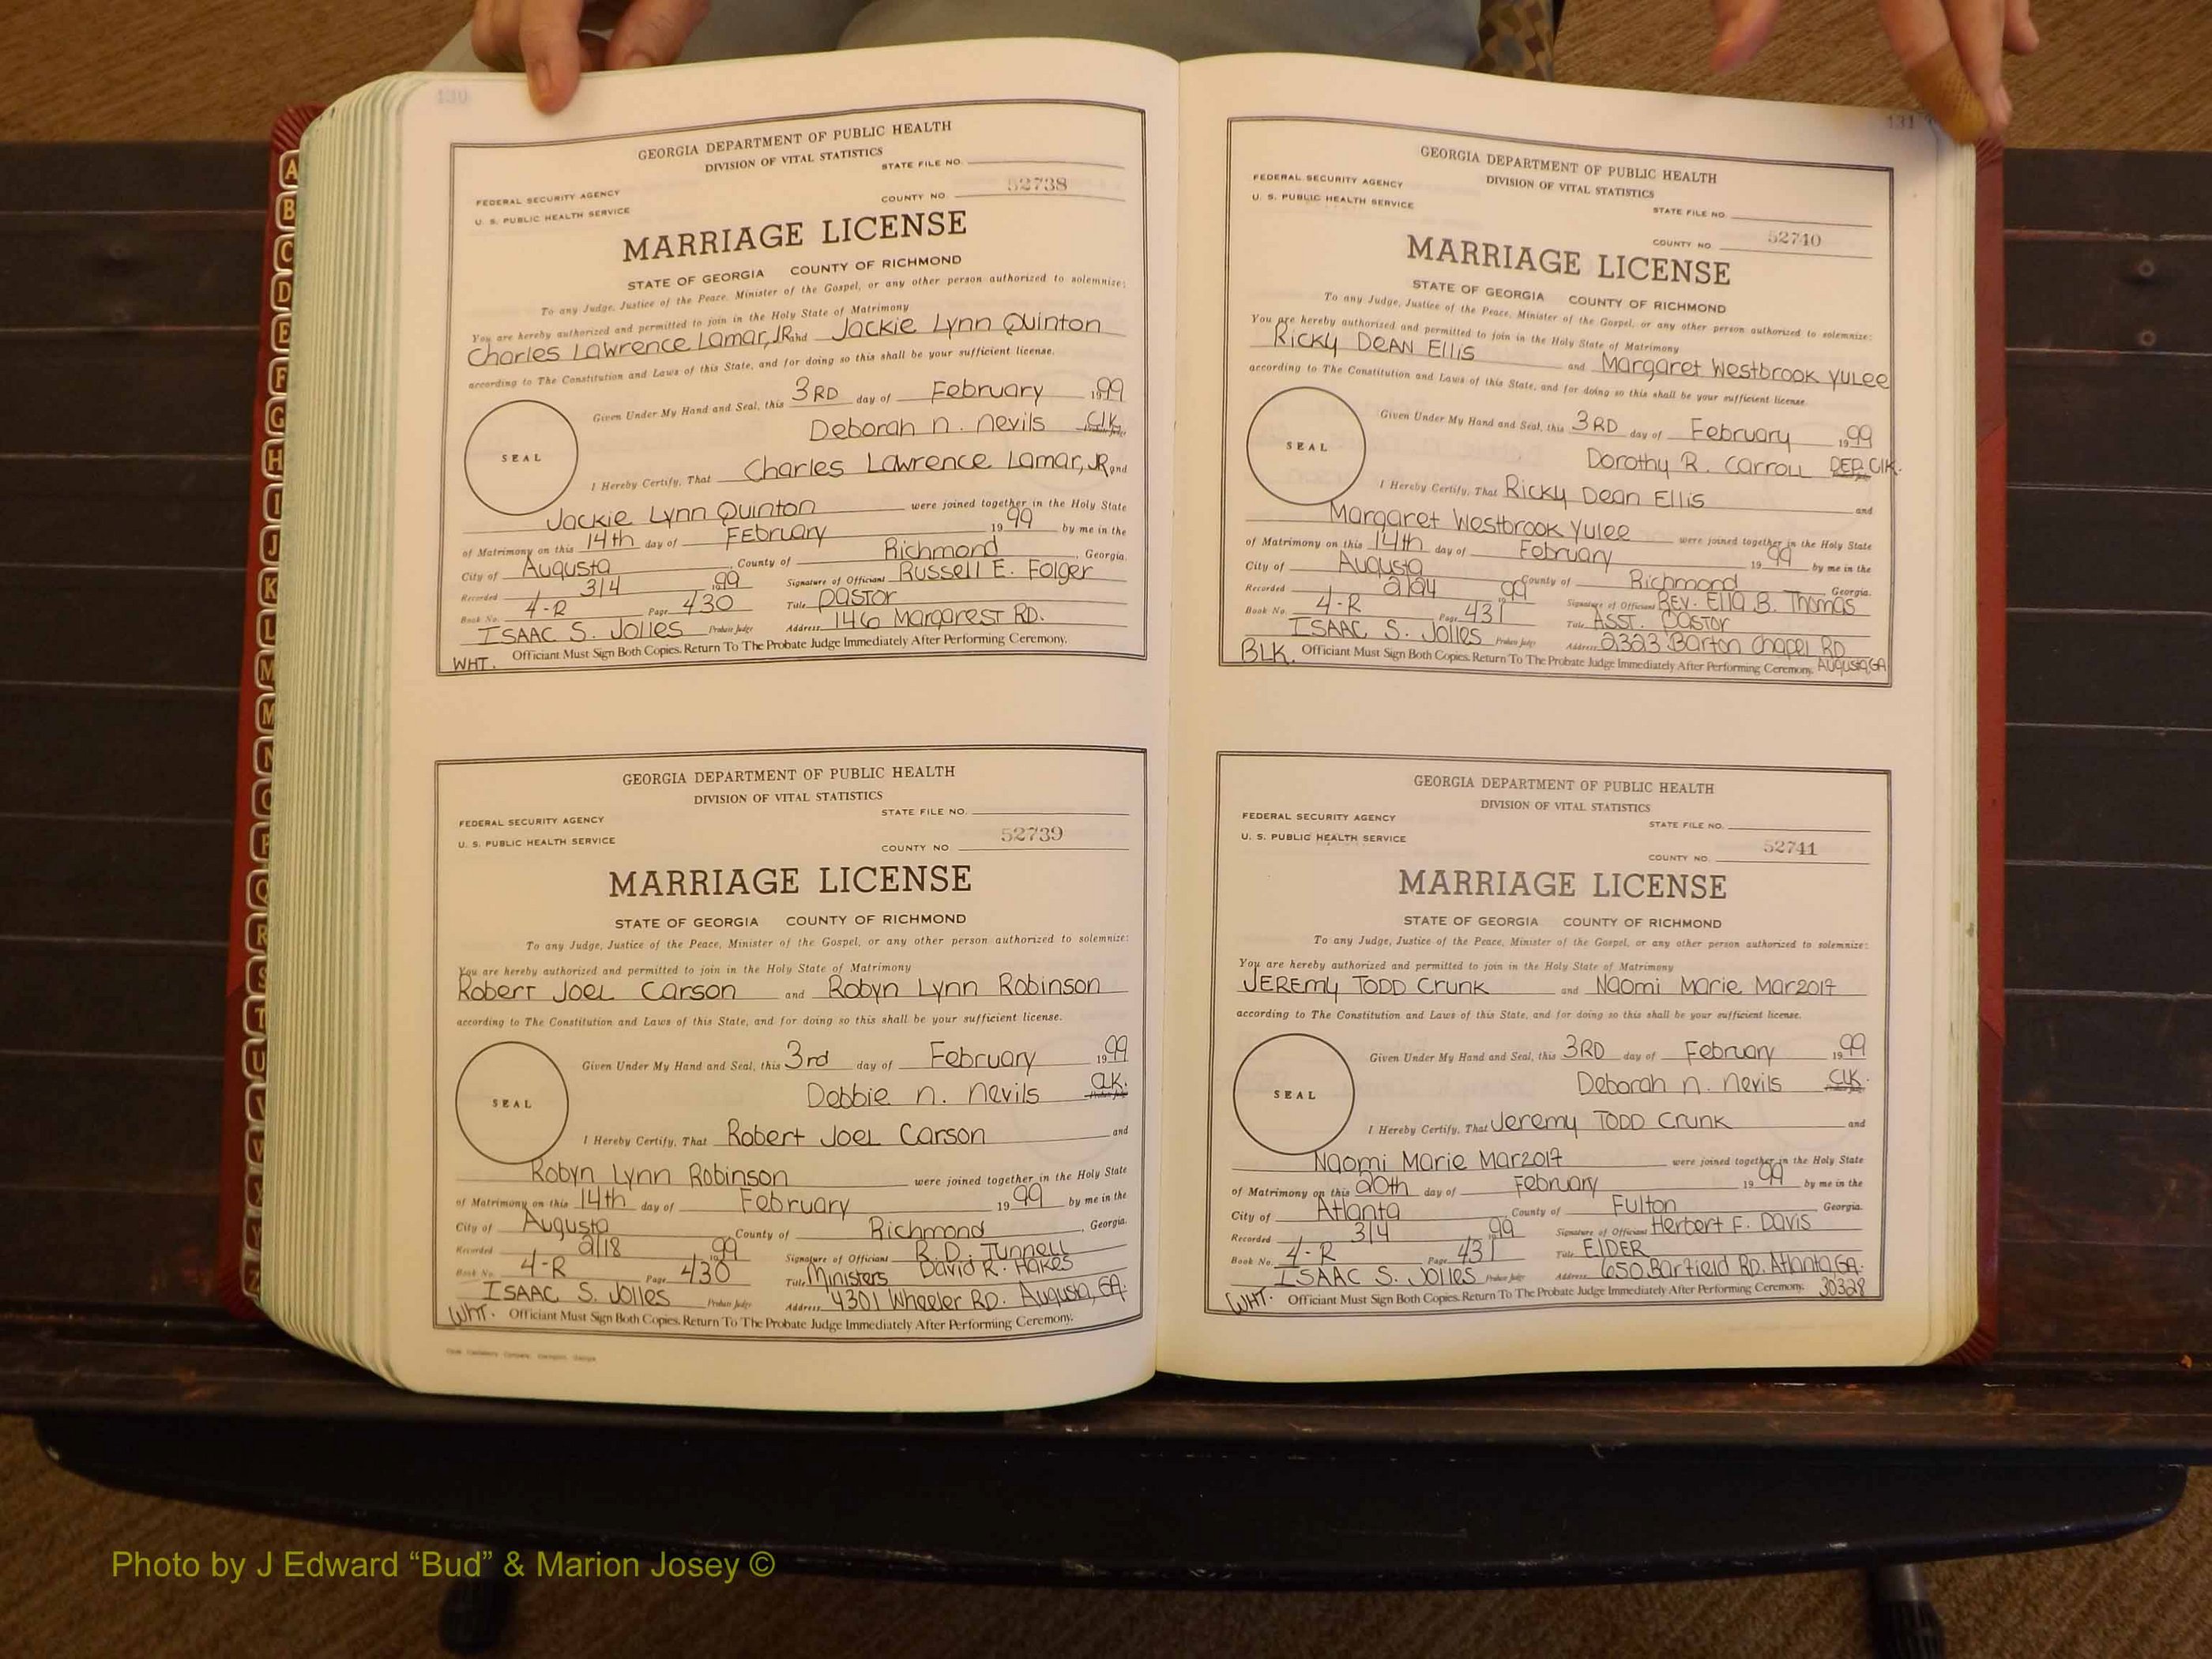 430
GEORGIA DEPARTMENT OF PUBLIC HEALTH
DIVISION OF VITAL STATISTICS
STATE FILE NO.
FEDERAL SECURITY AGENCY
U. S. PUBLIC HEALTH SERVICE
COUNTY NO. 52738
MARRIAGE LICENSE
STATE OF GEORGIA COUNTY OF RICHMOND
To any Judge, Justice of the Peace, Minister of the Gospel, or any other person authorized to solemnize:
You are hereby authorized and permitted to join in the Holy State of Matrimony
Charles Lawrence Lamar, JR and Jackie Lynn Quinton
according to The Constitution and Laws of this State, and for doing so this shall be your sufficient license.
Given Under My Hand and Seal, this 3RD day of February 1999
Deborah n. nevils Clk.
SEAL
I Hereby Certify, That Charles Lawrence Lamar, JR and
Jackie Lynn Quinton were joined together in the Holy State
of Matrimony on this 14th day of February 1999 by me in the
City of Augusta County of Richmond, Georgia.
Recorded 3/4 1999 Signature of Officiant Russell E. Folger
Book No. 4-R Page 430 Title pastor
ISAAC S. Jolles Probate Judge Address 146 Margarest RD.
WHT. Officiant Must Sign Both Copies. Return To The Probate Judge Immediately After Performing Ceremony.
GEORGIA DEPARTMENT OF PUBLIC HEALTH
DIVISION OF VITAL STATISTICS
STATE FILE NO.
FEDERAL SECURITY AGENCY
U. S. PUBLIC HEALTH SERVICE
COUNTY NO 52739
MARRIAGE LICENSE
STATE OF GEORGIA COUNTY OF RICHMOND
To any Judge, Justice of the Peace, Minister of the Gospel, or any other person authorized to solemnize:
You are hereby authorized and permitted to join in the Holy State of Matrimony
Robert Joel Carson and Robyn Lynn Robinson
according to The Constitution and Laws of this State, and for doing so this shall be your sufficient license.
Given Under My Hand and Seal, this 3rd day of February 1999
Debbie n. nevils Clk.
SEAL
I Hereby Certify, That Robert Joel Carson and
Robyn Lynn Robinson were joined together in the Holy State
of Matrimony on this 14th day of February 1999 by me in the
City of Augusta County of Richmond, Georgia.
Recorded 2/18 1999 Signature of Officiant R.D. Tunnell
David R. Hakes
Book No. 4-R Page 430 Title Ministers
ISAAC S. Jolles Probate Judge Address 4301 Wheeler RD. Augusta, GA.
WHT. Officiant Must Sign Both Copies. Return To The Probate Judge Immediately After Performing Ceremony.
431
GEORGIA DEPARTMENT OF PUBLIC HEALTH
DIVISION OF VITAL STATISTICS
FEDERAL SECURITY AGENCY
U. S. PUBLIC HEALTH SERVICE
STATE FILE NO.
COUNTY NO 52740
MARRIAGE LICENSE
STATE OF GEORGIA COUNTY OF RICHMOND
To any Judge, Justice of the Peace, Minister of the Gospel, or any other person authorized to solemnize:
You are hereby authorized and permitted to join in the Holy State of Matrimony
Ricky Dean Ellis and Margaret Westbrook Yulee
according to The Constitution and Laws of this State, and for doing so this shall be your sufficient license.
Given Under My Hand and Seal, this 3RD day of February 1999
Dorothy R. Carroll DEP. Clk.
SEAL
I Hereby Certify, That Ricky Dean Ellis and
Margaret Westbrook Yulee were joined together in the Holy State
of Matrimony on this 14th day of February 1999 by me in the
City of Augusta County of Richmond Georgia.
Recorded 2/24 99 Signature of Officiant REV. Ella B. Thomas
Book No. 4-R Page 431 Title ASST. Pastor
ISAAC S. Jolles Probate Judge Address 2323 Barton Chapel RD
BLK. Officiant Must Sign Both Copies. Return To The Probate Judge Immediately After Performing Ceremony. Augusta, GA
GEORGIA DEPARTMENT OF PUBLIC HEALTH
DIVISION OF VITAL STATISTICS
FEDERAL SECURITY AGENCY
STATE FILE NO.
U. S. PUBLIC HEALTH SERVICE
COUNTY NO. 52741
MARRIAGE LICENSE
STATE OF GEORGIA COUNTY OF RICHMOND
To any Judge, Justice of the Peace, Minister of the Gospel, or any other person authorized to solemnize:
You are hereby authorized and permitted to join in the Holy State of Matrimony
Jeremy Todd Crunk and Naomi Marie Mar2017
according to The Constitution and Laws of this State, and for doing so this shall be your sufficient license.
Given Under My Hand and Seal, this 3RD day of February 1999
Deborah n. nevils Clk.
SEAL
I Hereby Certify, That Jeremy Todd Crunk and
Naomi Marie Mar2017 were joined together in the Holy State
of Matrimony on this 20th day of February 1999 by me in the
City of Atlanta County of Fulton Georgia.
Recorded 3/4 1999 Signature of Officiant Herbert F. Davis
Book No. 4-R Page 431 Title ElDER
ISAAC S. Jolles Probate Judge Address 650 Barfield RD. Atlanta, GA.
WHT. Officiant Must Sign Both Copies. Return To The Probate Judge Immediately After Performing Ceremony. 30328
A
B
C
D
E
F
G
H
I
J
K
L
M
M
N
O
P
Q
R
S
T
U
V
W
X
Y
Z
Photo by J Edward “Bud” & Marion Josey ©